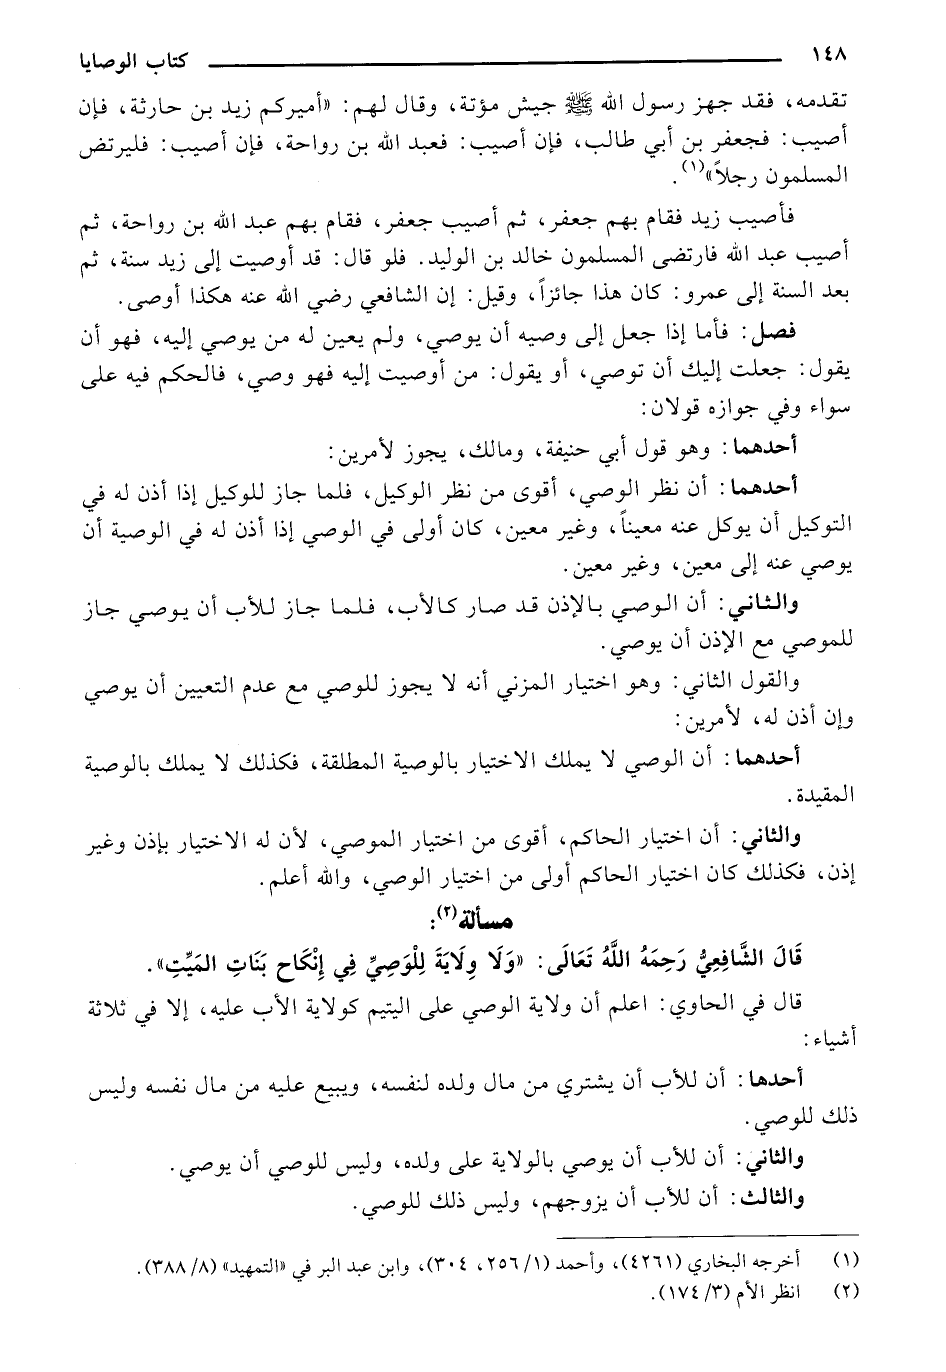 ١٤٨ كتاب الوصايا
تقدمه، فقد جهز رسول الله ﷺ جيش مؤتة، وقال لهم: «أميركم زيد بن حارثة، فإن
أصيب: فجعفر بن أبي طالب، فإن أصيب: فعبد الله بن رواحة، فإن أصيب: فليرتض
المسلمون رجلاً»(١).
فأصيب زيد فقام بهم جعفر، ثم أصيب جعفر، فقام بهم عبد الله بن رواحة، ثم
أصيب عبد الله فارتضى المسلمون خالد بن الوليد. فلو قال: قد أوصيت إلى زيد سنة، ثم
بعد السنة إلى عمرو: كان هذا جائزاً، وقيل: إن الشافعي رضي الله عنه هكذا أوصى.
فصل: فأما إذا جعل إلى وصيه أن يوصي، ولم يعين له من يوصي إليه، فهو أن
يقول: جعلت إليك أن توصي، أو يقول: من أوصيت إليه فهو وصي، فالحكم فيه على
سواء وفي جوازه قولان:
أحدهما: وهو قول أبي حنيفة، ومالك، يجوز لأمرين:
أحدهما: أن نظر الوصي، أقوى من نظر الوكيل، فلما جاز للوكيل إذا أذن له في
التوكيل أن يوكل عنه معيناً، وغير معين، كان أولى في الوصي إذا أذن له في الوصية أن
يوصي عنه إلى معين، وغير معين.
والثاني: أن الوصي بالإذن قد صار كالأب، فلما جاز للأب أن يوصي جاز
للموصي مع الإذن أن يوصي.
والقول الثاني: وهو اختيار المزني أنه لا يجوز للوصي مع عدم التعيين أن يوصي
وإن أذن له، لأمرين:
أحدهما: أن الوصي لا يملك الاختيار بالوصية المطلقة، فكذلك لا يملك بالوصية
المقيدة.
والثاني: أن اختيار الحاكم، أقوى من اختيار الموصي، لأن له الاختيار بإذن وغير
إذن، فكذلك كان اختيار الحاكم أولى من اختيار الوصي، والله أعلم.
مسألة(٢):
قَالَ الشَّافِعِيُّ رَحِمَهُ اللَّهُ تَعَالَى: «وَلَا وِلَايَةَ لِلْوَصِيِّ فِي إِنْكَاحِ بَنَاتِ المَيِّتِ».
قال في الحاوي: اعلم أن ولاية الوصي على اليتيم كولاية الأب عليه، إلا في ثلاثة
أشياء:
أحدها: أن للأب أن يشتري من مال ولده لنفسه، ويبيع عليه من مال نفسه وليس
ذلك للوصي.
والثاني: أن للأب أن يوصي بالولاية على ولده، وليس للوصي أن يوصي.
والثالث: أن للأب أن يزوجهم، وليس ذلك للوصي.
(١) أخرجه البخاري (٤٢٦١)، وأحمد (١/ ٢٥٦، ٣٠٤)، وابن عبد البر في «التمهيد» (٨/ ٣٨٨).
(٢) انظر الأم (٣/ ١٧٤).